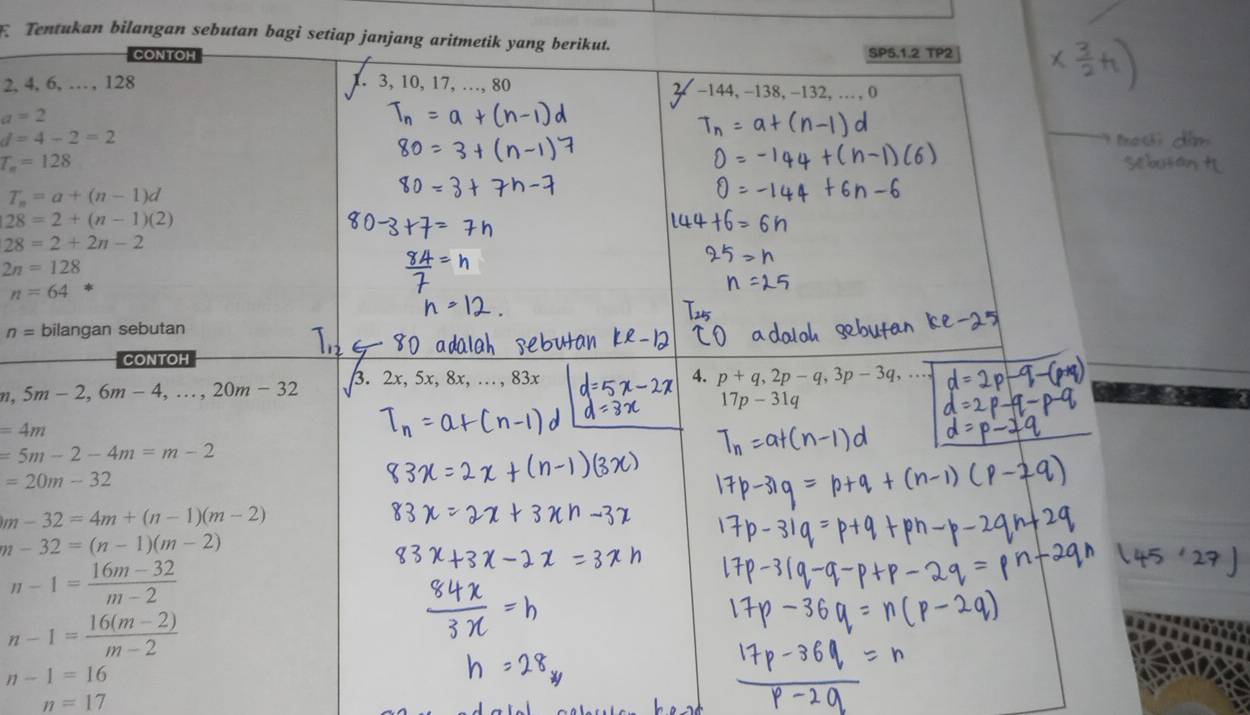 F. Tentukan bilangan sebutan bagi setiap janjang aritmetik yang berikut.
SP5.1.2 TP2
CONTOH
2, 4, 6, …, 128
a = 2
d = 4 − 2 = 2
Tₙ = 128
Tₙ = a + (n − 1)d
128 = 2 + (n − 1)(2)
128 = 2 + 2n − 2
2n = 128
n = 64 *
n = bilangan sebutan
1. 3, 10, 17, …, 80
Tn = a + (n-1)d
80 = 3 + (n-1)7
80 = 3 + 7n - 7
80-3+7 = 7n
84/7 = n
n = 12.
T12 ← 80 adalah sebutan ke-12
2. −144, −138, −132, …, 0
Tn = a+(n-1)d
0 = -144 + (n-1)(6)
0 = -144 + 6n - 6
144+6 = 6n
25 = n
n = 25
T25
0 adalah sebutan ke-25
CONTOH
m, 5m − 2, 6m − 4, …, 20m − 32
= 4m
= 5m − 2 − 4m = m − 2
= 20m − 32
m − 32 = 4m + (n − 1)(m − 2)
m − 32 = (n − 1)(m − 2)
n − 1 = 16m − 32 / m − 2
n − 1 = 16(m − 2) / m − 2
n − 1 = 16
n = 17
3. 2x, 5x, 8x, …, 83x
d = 5x - 2x
d = 3x
Tn = a+(n-1)d
83x = 2x + (n-1)(3x)
83x = 2x + 3xn - 3x
83x+3x-2x = 3xn
84x/3x = n
n = 28
4. p + q, 2p − q, 3p − 3q, …,
17p − 31q
d = 2p-q-(p+q)
d = 2p-q-p-q
d = p-2q
Tn = a+(n-1)d
17p-31q = p+q + (n-1)(p-2q)
17p-31q = p+q+pn-p-2qn+2q
17p-31q-q-p+p-2q = pn-2qn
17p-36q = n(p-2q)
17p-36q / p-2q = n
× 3/2 n)
sebutan
(45 ' 27)